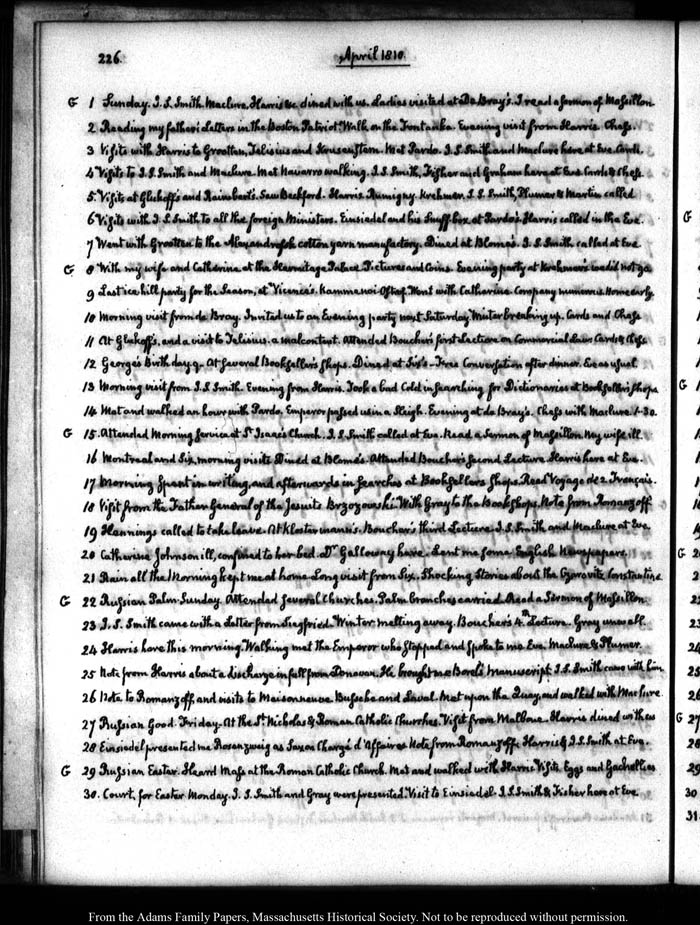 226.
April 1810.
G 1 Sunday. I. S. Smith. Maclure, Harris &c. dined with us. Ladies visited at De Bray's. I read a Sermon of Massillon.
2 Reading my father's Letters in the Boston Patriot. Walk on the Fontanka. Evening visit from Harris. Chess.
3 Visits with Harris to Grootten, Jelisius and Krusenstern. Met Pardo. I. S. Smith and Maclure here at Eve. Cards.
4 Visits to I. S. Smith and Maclure. Met Navarro walking. I. S. Smith, Fisher and Graham here at Eve. Cards & Chess.
5. Visits at Glukoff's and Raimbert's. Saw Beckford. Harris. Rumigny. Krehmer. I. S. Smith, Plumer & Martin called
6 Visits with I. S. Smith to all the foreign Ministers. Einsiedel and his Snuff box at Pardo's. Harris called in the Eve.
7 Went with Grootten to the cotton yarn manufactory. Dined at Blome's. I. S. Smith called at Eve.
G 8 With my wife and Catherine at the Hermitage Palace. Pictures and Coins. Evening party at Krehmer's we did not go
9 Last ice hill party for the Season, at Vicence's. Kammenoi Ostrof. Went with Catherine. Company numerous. Home early.
10 Morning visit from de Bray. Invited us to an Evening party next Saturday. Winter breaking up. Cards and Chess
11 At Glukoff's, and a visit to Jelisius. a malcontent. Attended Boucher's first Lecture on Commercial Law. Cards & Chess
12 George's Birth day 9. At Several Bookseller's shops. Dined at Six's. Free Conversation after dinner. Eve as usual
13 Morning visit from I. S. Smith. Evening from Harris. Took a bad Cold in searching for Dictionaries at Bookseller's shops
14 Met and walked an hour with Pardo. Emperor passed us in a Sleigh. Evening at de Bray's. Chess with Maclure. 1-30.
G 15. Attended Morning Service at St. Isaac's Church. I. S. Smith called at Eve. Read a Sermon of Massillon. My wife ill.
16 Montreal and Six, morning visits. Dined at Blome's. Attended Boucher's Second Lecture. Harris here at Eve.
17 Morning Spent in writing, and afterwards in Searches at Bookseller's shops. Read Voyage de 2. Français.
18 Visit from the Father General of the Jesuits Brzozowski. With Gray to the Book shops. Note from Romanzoff
19 Hannings called to take leave. At Klostermann's. Boucher's third Lecture. I. S. Smith and Maclure at Eve.
20 Catherine Johnson ill, confined to her bed. Dr. Galloway here. Lent me some English Newspapers.
21 Rain all the Morning kept me at home. Long visit from Six. Shocking Stories about the Czarovitz Constantine
G 22 Russian Palm Sunday. Attended several Churches. Palm branches carried. Read a Sermon of Massillon.
23 I. S. Smith came with a Letter from Siegfried. Winter melting away. Boucher's 4th. Lecture. Gray unwell.
24 Harris here this morning. Walking met the Emperor who stopped and Spoke to me. Eve. Maclure & Plumer.
25 Note from Harris about a discharge in full from Donavan. He brought me Borel's Manuscript. I. S. Smith came with him
26 Note to Romanzoff, and visits to Maisonneuve Bussche and Laval. Met upon the Quay, and walked with Maclure.
27 Russian Good Friday. At the St. Nicholas & Roman Catholic Churches. Visit from Malboue. Harris dined with us
28 Einsiedel presented me Rosenzweig as Saxon Chargé d'Affaires. Note from Romanzoff. Harris & I. S. Smith at Eve.
G 29 Russian Easter. Heard Mass at the Roman Catholic Church. Met and walked with Harris. Visits. Eggs and
30. Court, for Easter Monday. I. S. Smith and Gray were presented. Visit to Einsiedel. I. S. Smith & Fisher here at Eve.
From the Adams Family Papers, Massachusetts Historical Society. Not to be reproduced without permission.